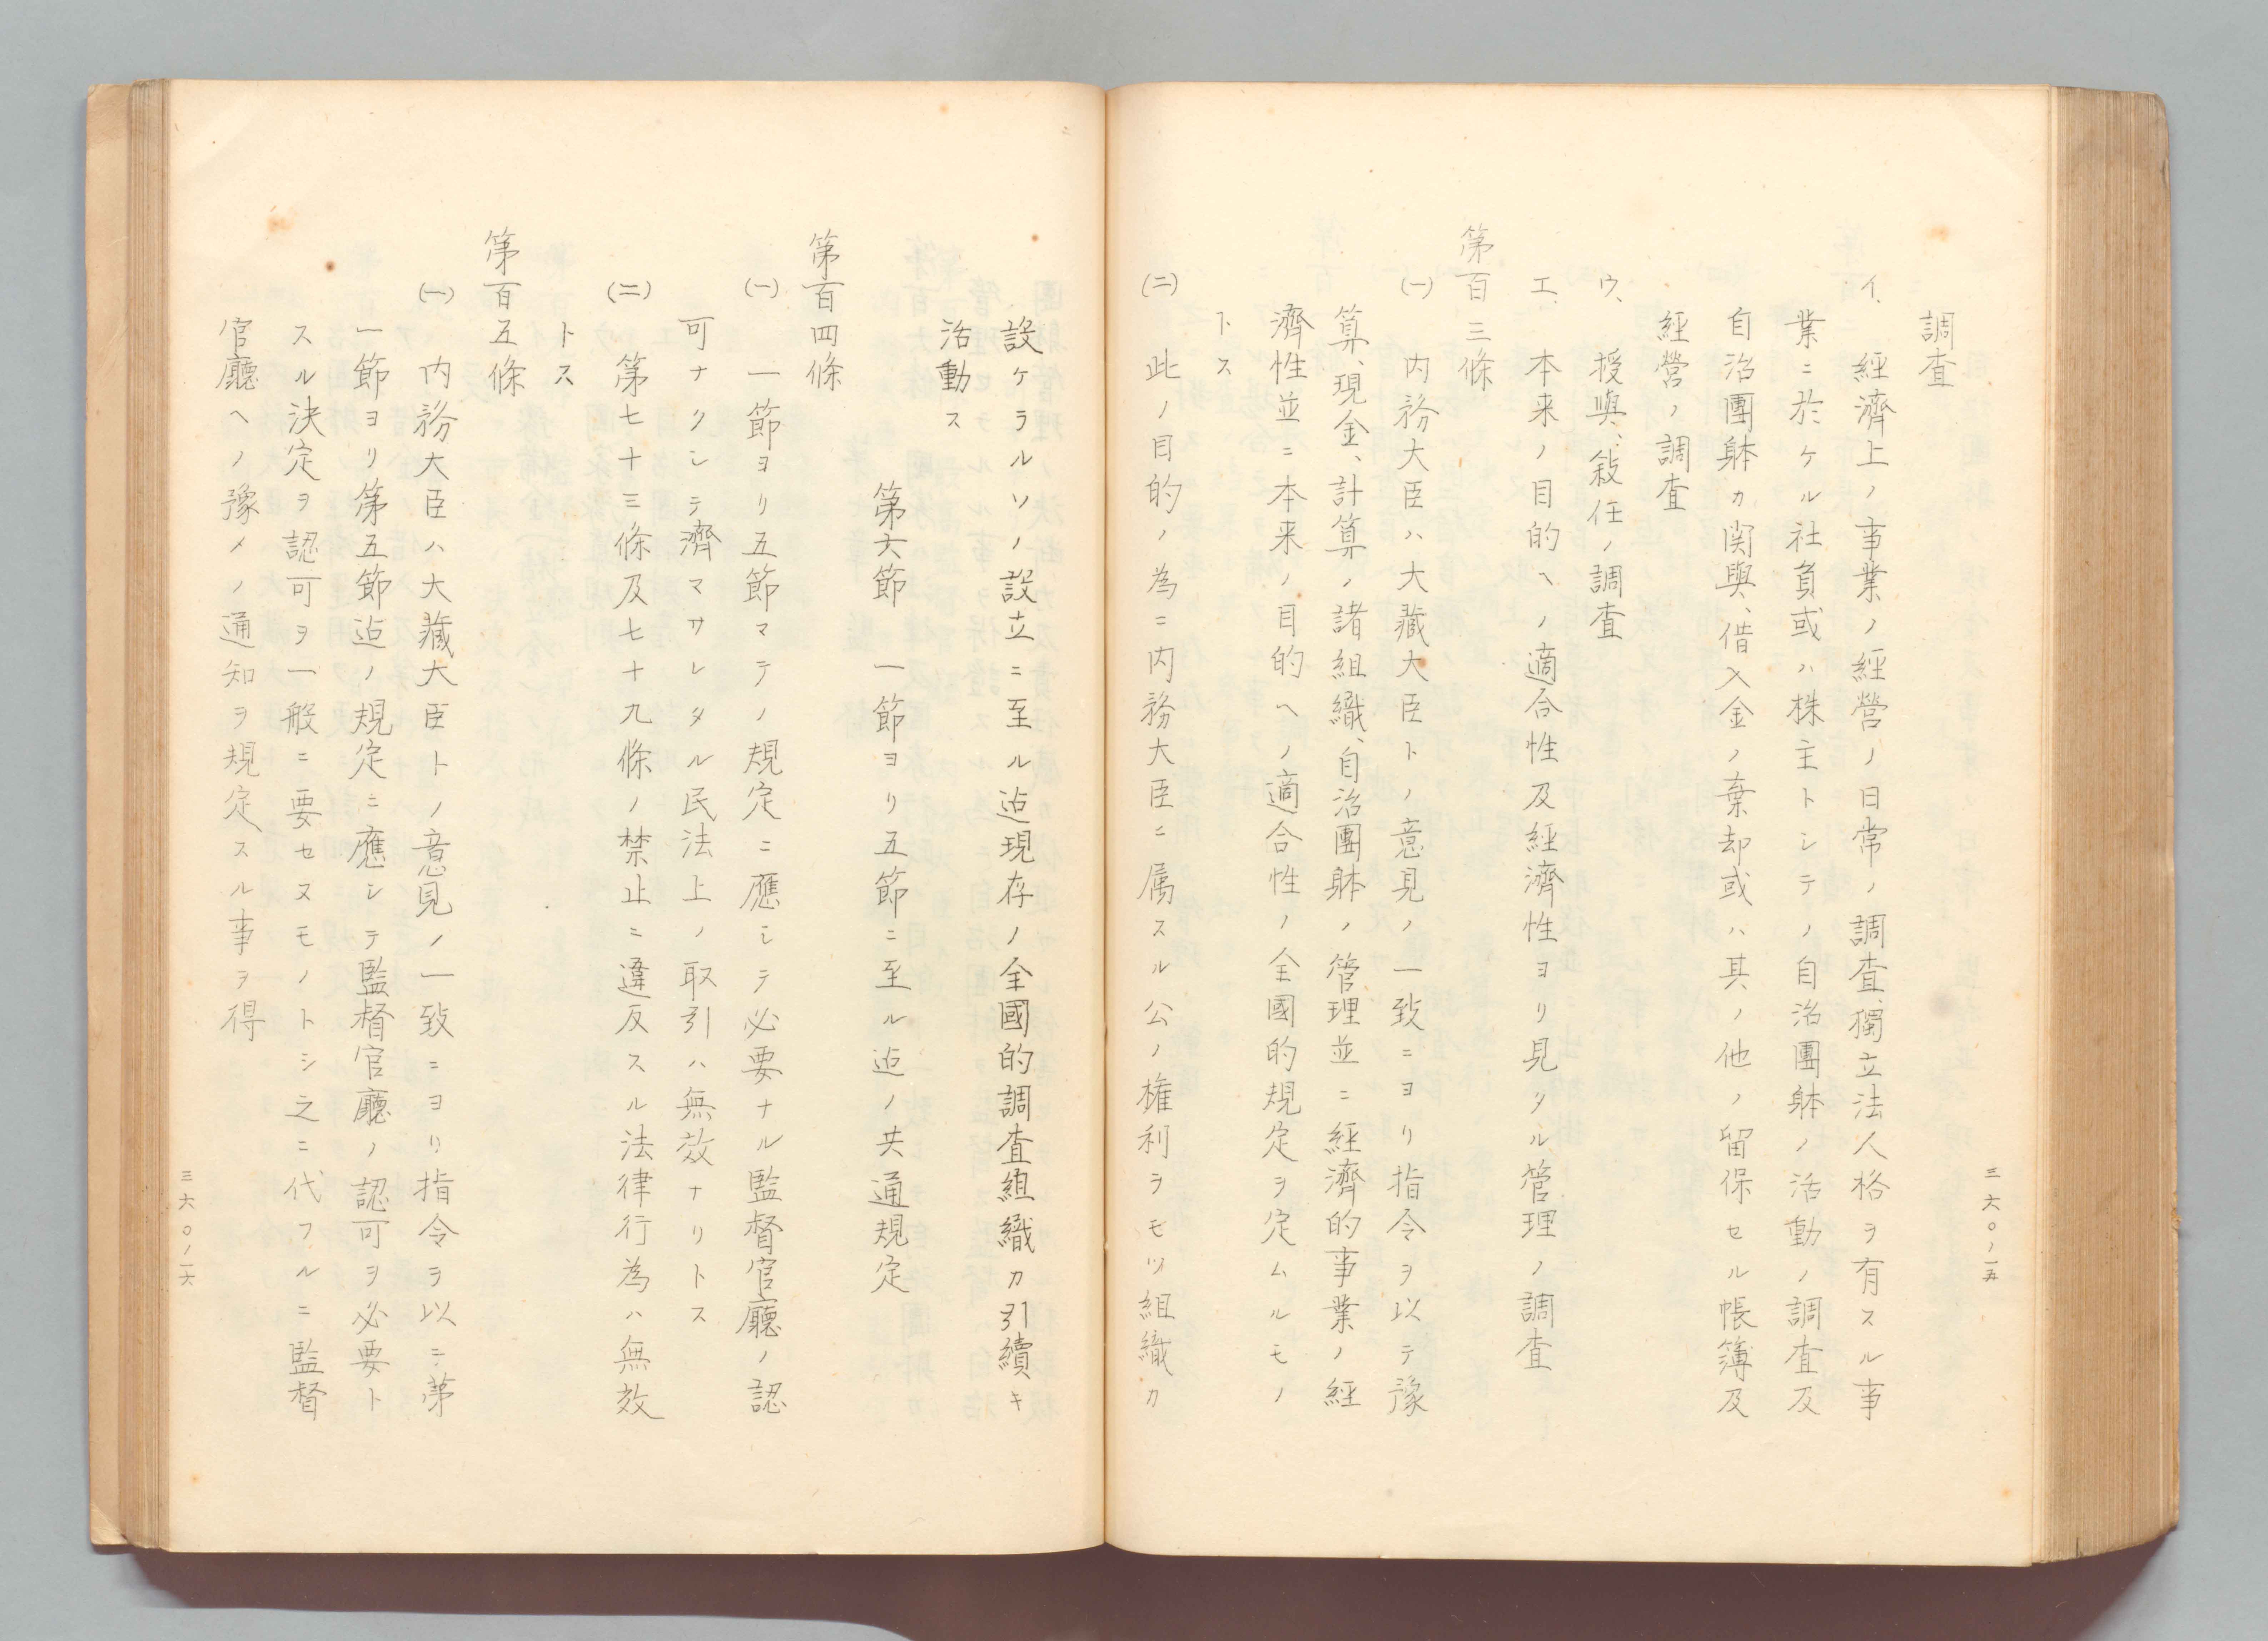 三六〇ノ一五
調査
イ、經濟上ノ事業ノ經營ノ日常ノ調査、獨立法人格ヲ有スル事
業ニ於ケル社員或ハ株主トシテノ自治團躰ノ活動ノ調査及
自治團躰カ関與、借入金ノ棄却或ハ其ノ他ノ留保セル帳簿及
經營ノ調査
ウ、授與、敍任ノ調査
エ、本来ノ目的ヘノ適合性及經濟性ヨリ見タル管理ノ調査
第百三條
(一)内務大臣ハ大藏大臣トノ意見ノ一致ニヨリ指令ヲ以テ豫
算、現金、計算ノ諸組織、自治團躰ノ管理並ニ經濟的事業ノ經
濟性並ニ本来ノ目的ヘノ適合性ノ全國的規定ヲ定ムルモノ
トス
(二)此ノ目的ノ為ニ内務大臣ニ属スル公ノ権利ヲモツ組織カ
設ケラルソノ設立ニ至ル迠現存ノ全國的調査組織カ引續キ
活動ス
第六節 一節ヨリ五節ニ至ル迠ノ共通規定
第百四條
(一)一節ヨリ五節マテノ規定ニ應シテ必要ナル監督官廳ノ認
可ナクシテ濟マサレタル民法上ノ取引ハ無效ナリトス
(二)第七十三條及七十九條ノ禁止ニ違反スル法律行為ハ無效
トス
第百五條
(一)内務大臣ハ大藏大臣トノ意見ノ一致ニヨリ指令ヲ以ニ第
一節ヨリ第五節迠ノ規定ニ應シテ監督官廳ノ認可ヲ必要ト
スル決定ヲ認可ヲ一般ニ要セヌモノトシ之ニ代フルニ監督
官廳ヘノ豫メノ通知ヲ規定スル事ヲ得
三六〇ノ一六